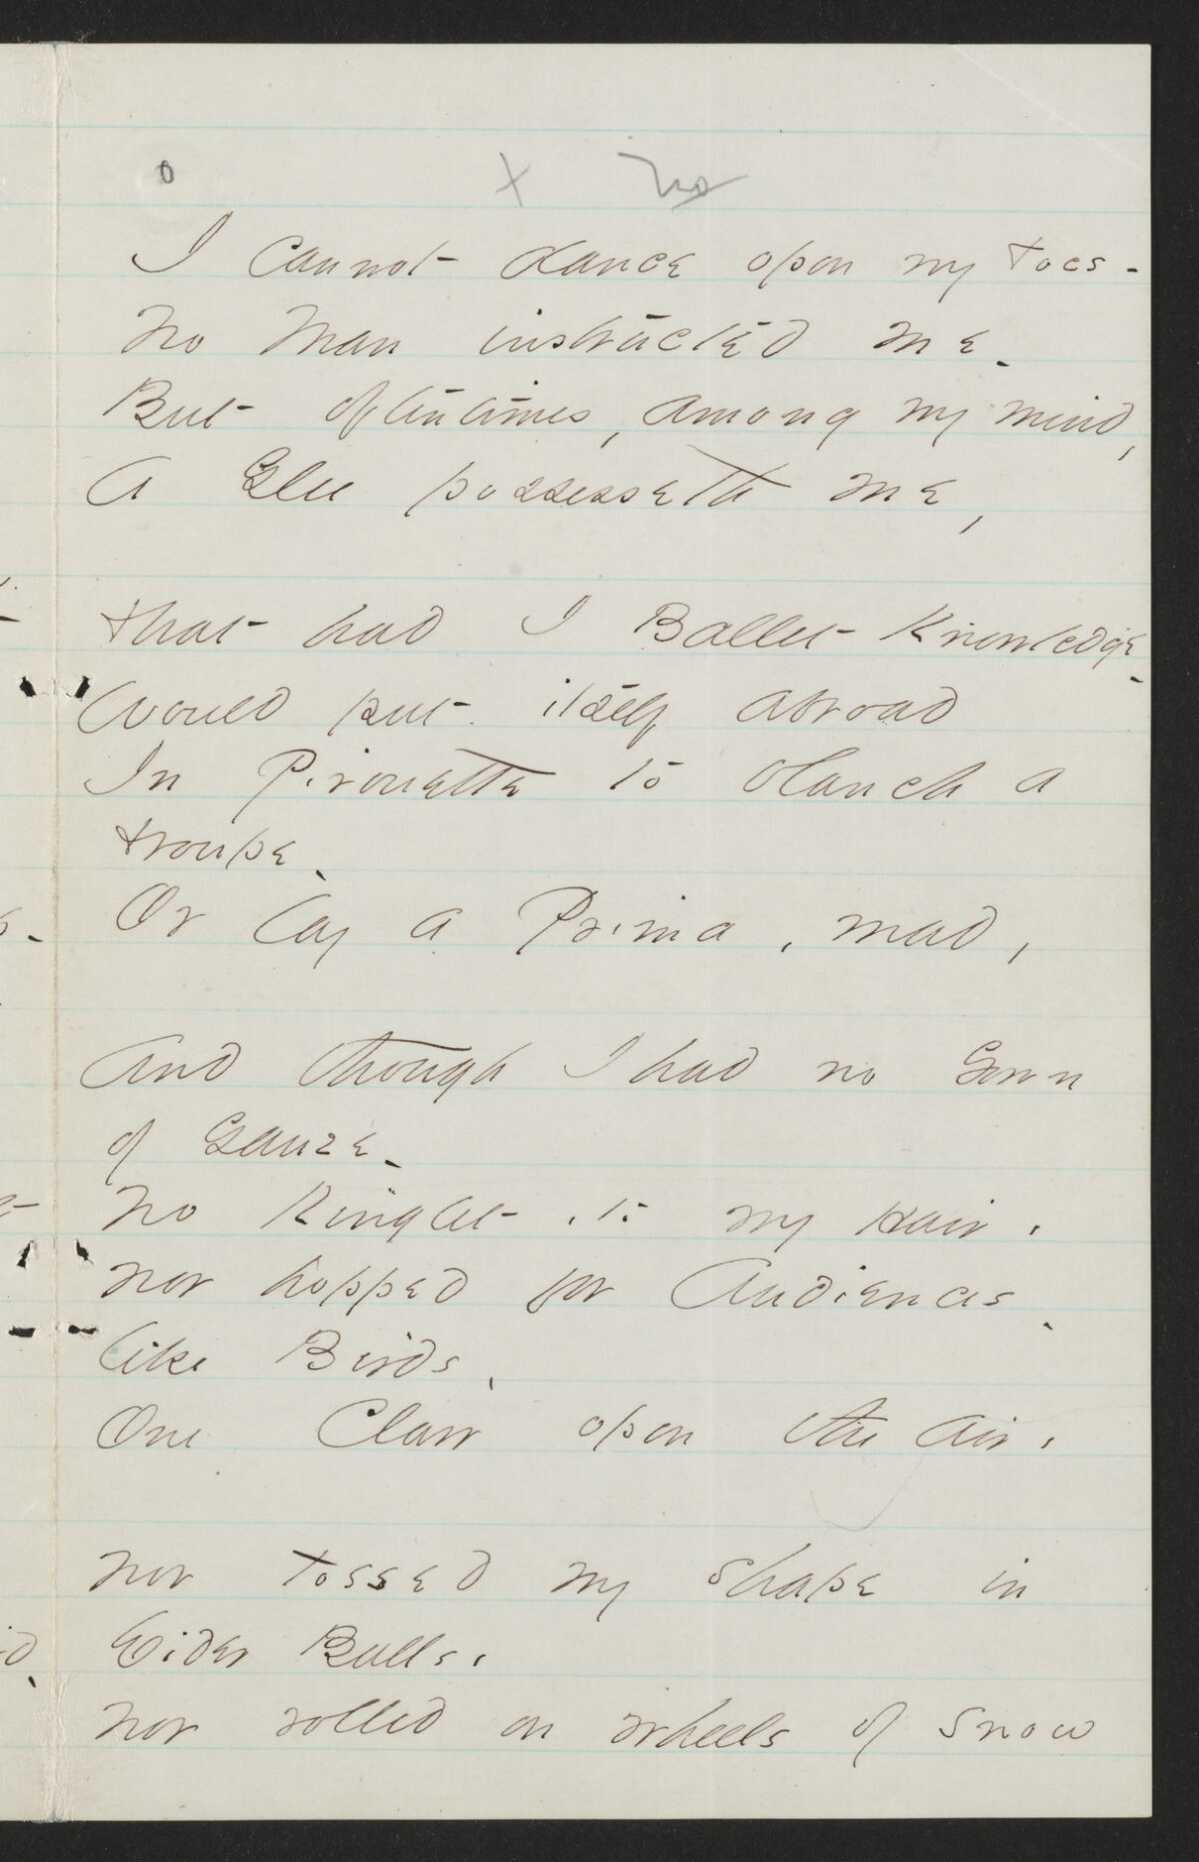 o + no
I cannot dance opon my Toes -
No Man instructed me -
But oftentimes, among my mind,
A Glee possesseth me,
That had I Ballet Knowledge -
Would put itself abroad
In Pirouette to blanch a
Troupe -
Or lay a Prima, mad,
And though I had no Gown
of Gauze -
No Ringlet, to my Hair,
Nor hopped for Audiences -
like Birds,
One Claw opon the Air,
Nor tossed my shape in
Eider Balls,
Nor rolled on wheels of snow